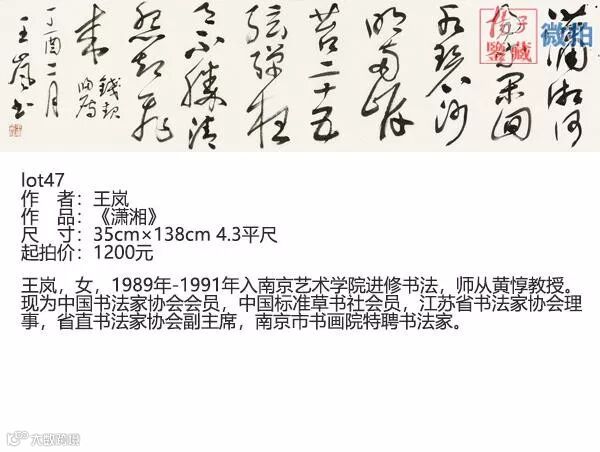 瀟湘何
事等閒回
水碧沙
明兩岸
苔二十五
弦彈夜
月不勝清
怨却飛
來
錢起
歸雁
丁酉二月
王嵐书
揚子
鑒藏
微拍
lot47
作 者：王岚
作 品：《潇湘》
尺 寸：35cm×138cm 4.3平尺
起拍价：1200元
王岚，女，1989年-1991年入南京艺术学院进修书法，师从黄惇教授。
现为中国书法家协会会员，中国标准草书社会员，江苏省书法家协会理
事，省直书法家协会副主席，南京市书画院特聘书法家。
大数跨境